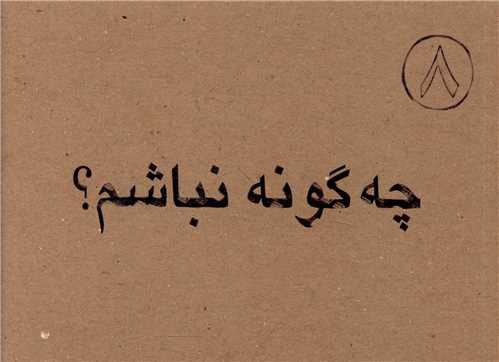 ۸
چه‌گونه نباشم؟